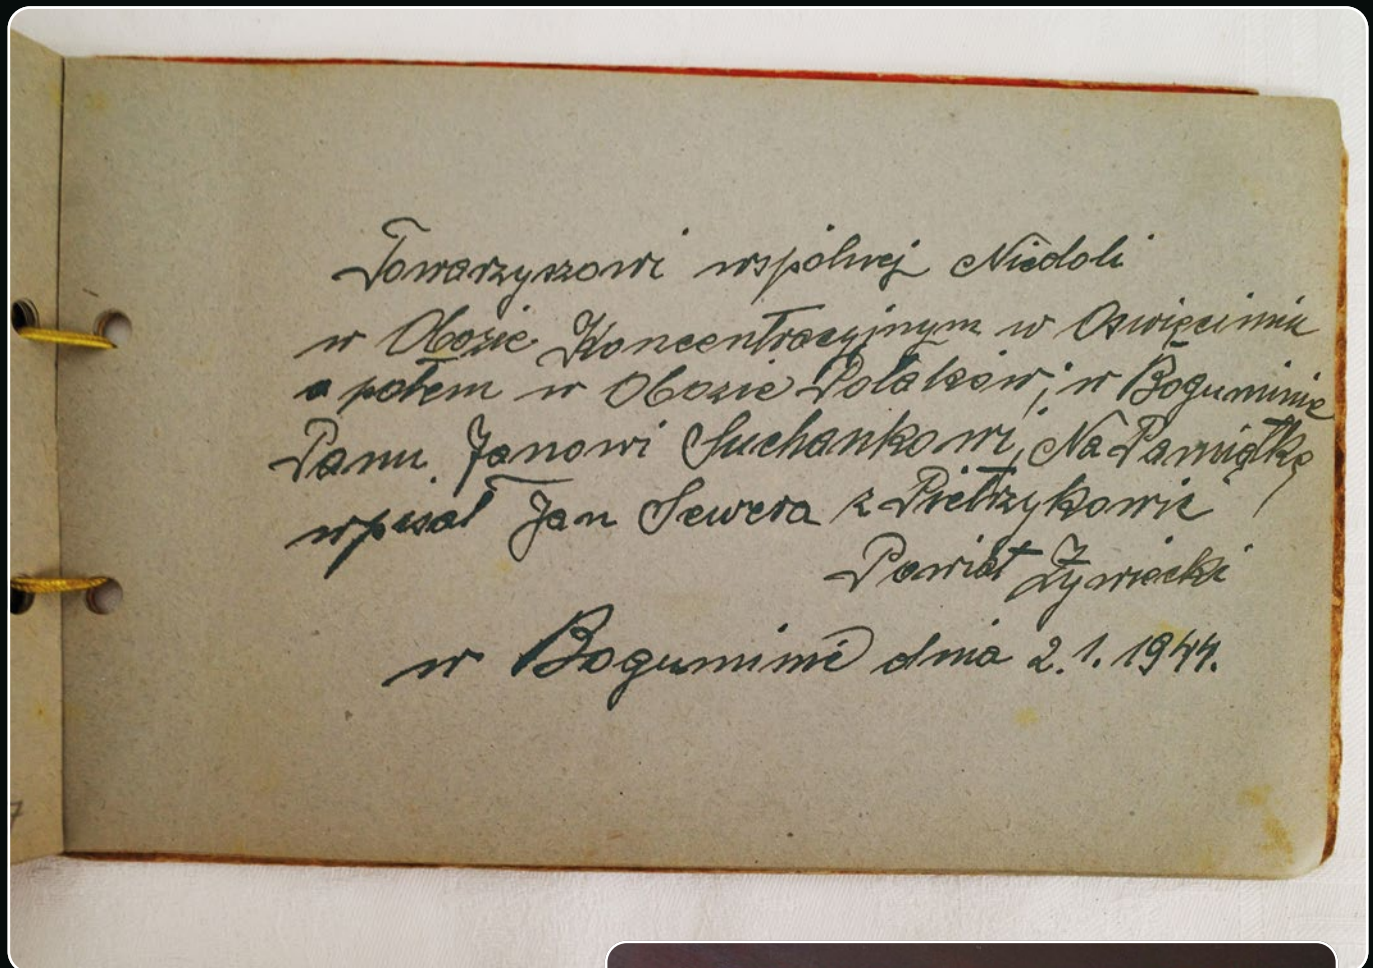 Towarzyszowi wspólnej Niedoli
w Obozie Koncentracyjnym w Oswięcimiu
a potem w Obozie Polaków, w Boguminie
Panu Janowi Suchankowi, Na Pamiątkę
wpisał Jan Sewera z Pietrzykowic
Powiat Żywiecki
w Boguminie dnia 2.1.1944.